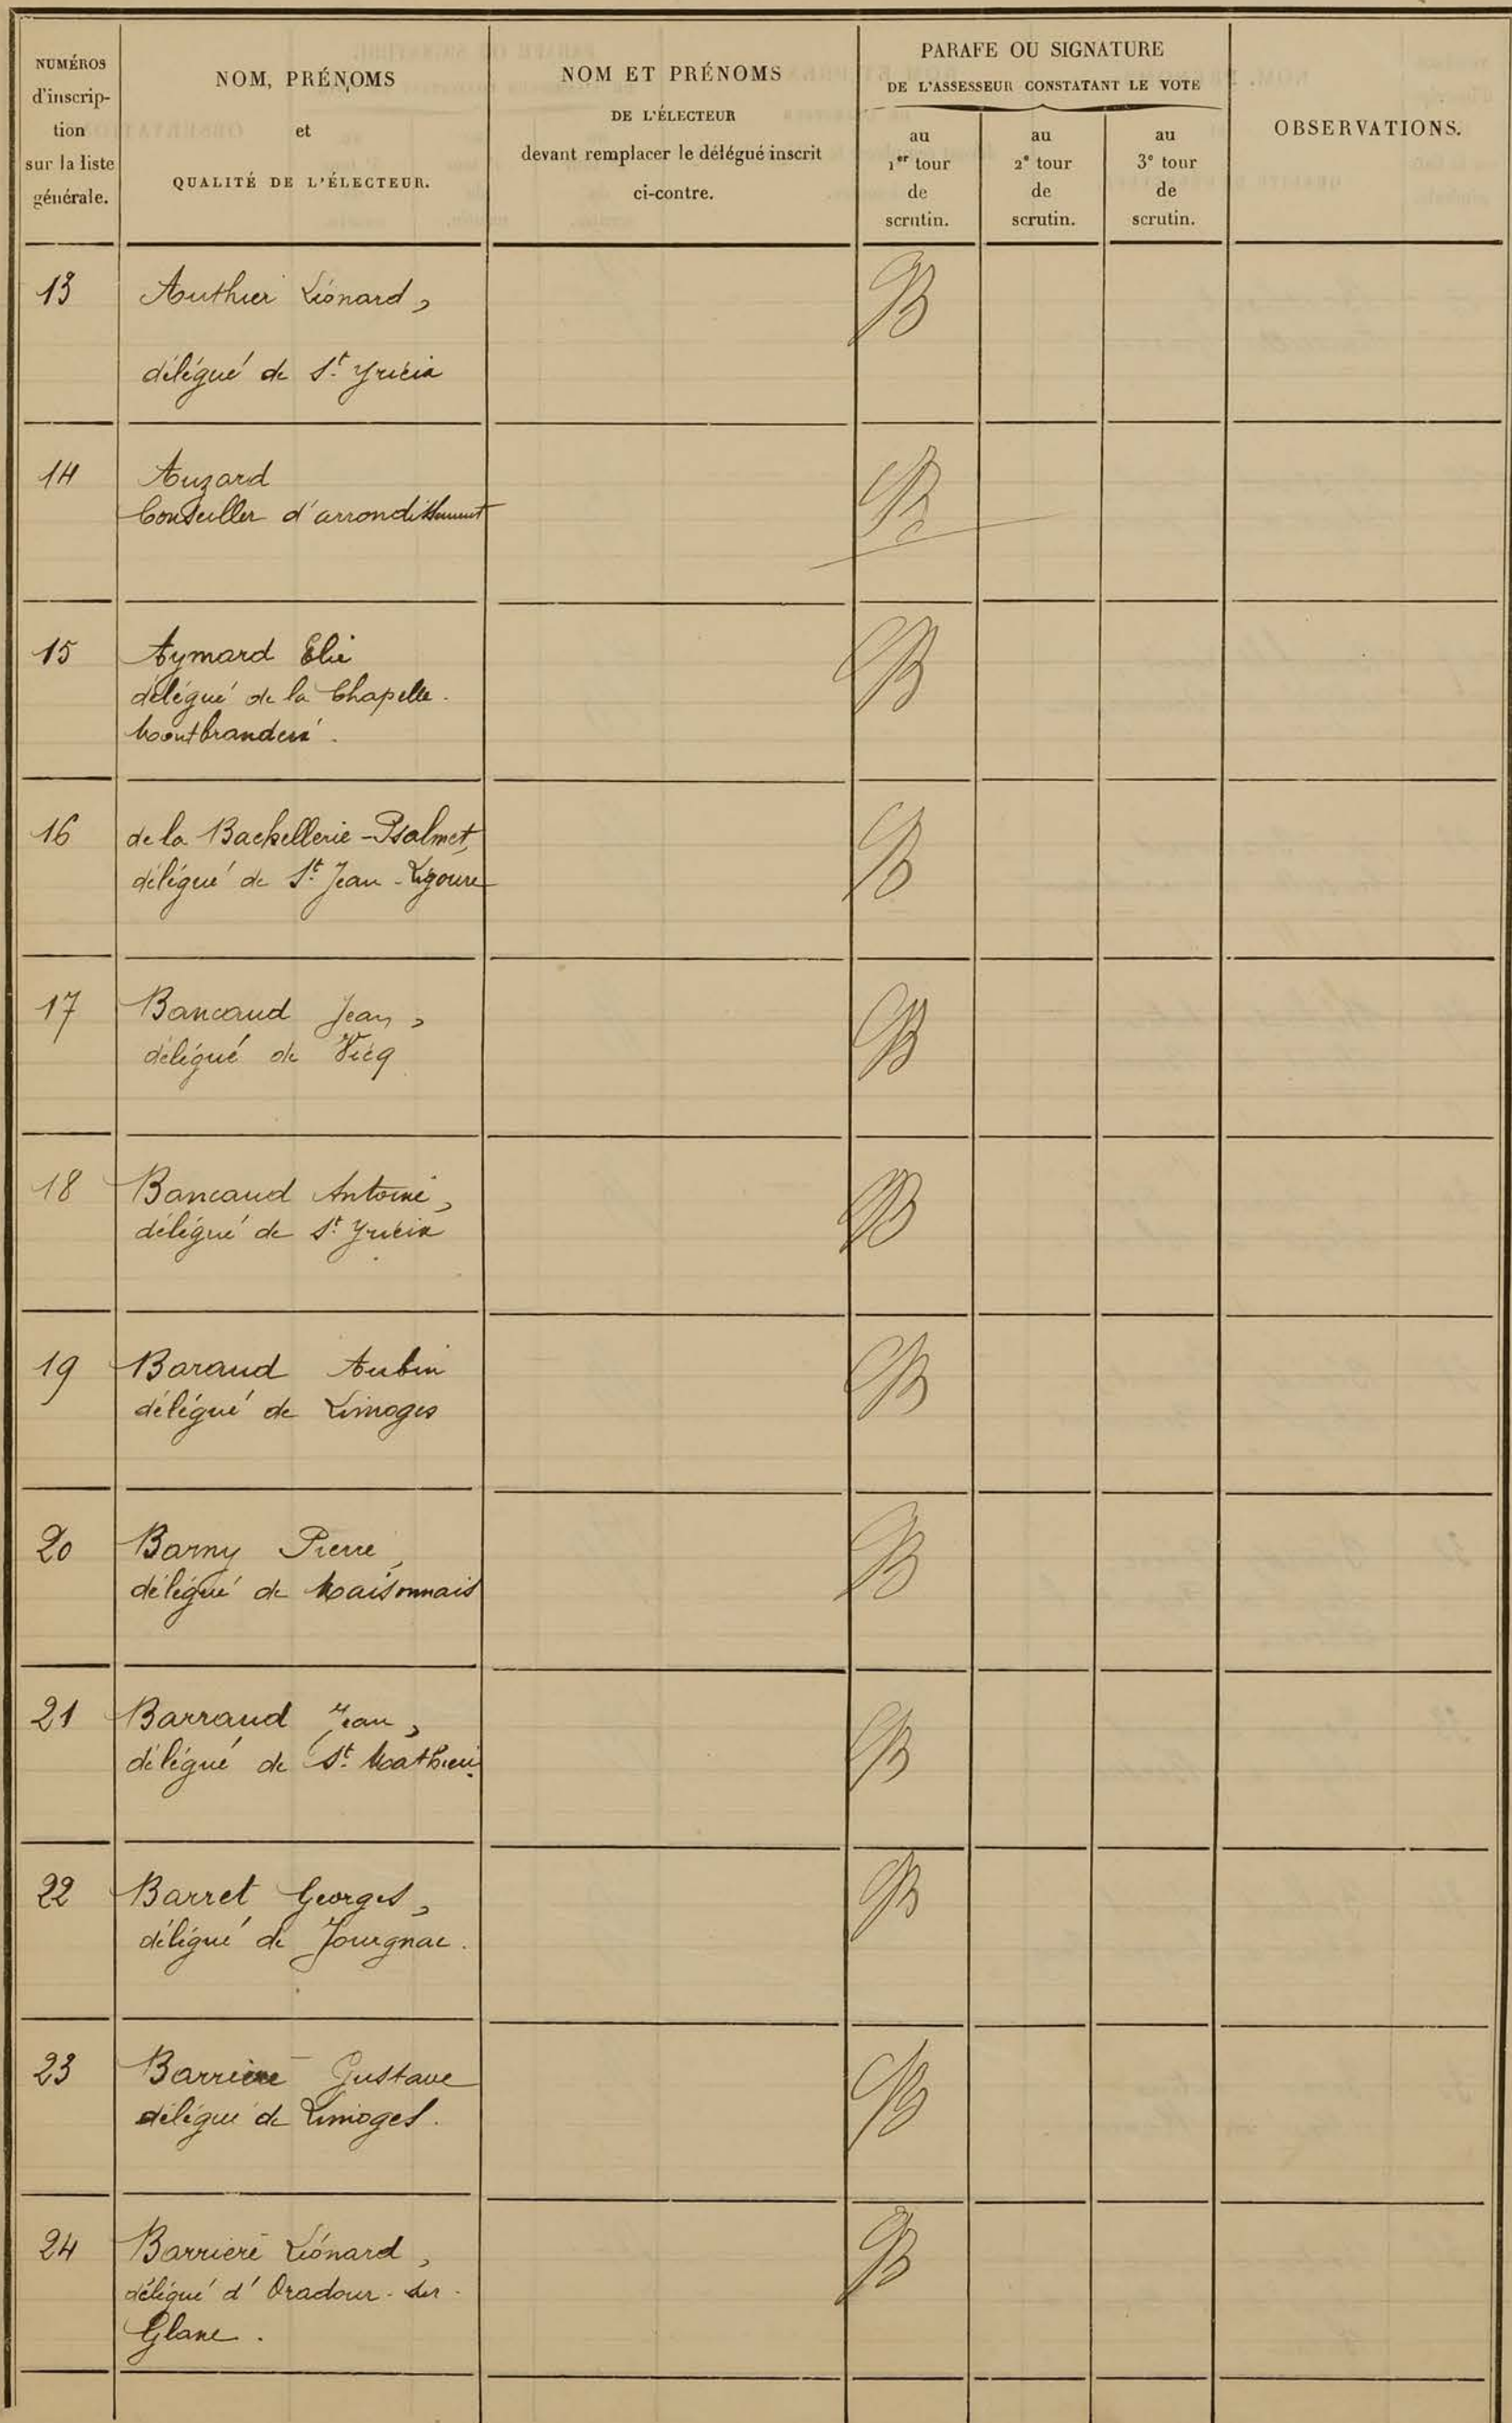 NUMÉROS
d'inscrip-
tion
sur la liste
générale.
NOM, PRÉNOMS
et
QUALITÉ DE L'ÉLECTEUR.
NOM ET PRÉNOMS
DE L'ÉLECTEUR
devant remplacer le délégué inscrit
ci-contre.
PARAFE OU SIGNATURE
DE L'ASSESSEUR CONSTATANT LE VOTE
au
1er tour
de
scrutin.
au
2e tour
de
scrutin.
au
3e tour
de
scrutin.
OBSERVATIONS.
13 Authier Léonard,
délégué de St. Yrieix
14 Auzard
Conseiller d'arrondissement
15 Aymard Elie
délégué de la Chapelle-
Montbrandeix.
16 de la Bachellerie-Psalmet,
délégué de St. Jean-Ligoure
17 Bancaud Jean,
délégué de Vicq
18 Bancaud Antoine,
délégué de St. Yrieix
19 Baraud Aubin
délégué de Limoges
20 Barny Pierre,
délégué de Maisonnais
21 Barraud Jean,
délégué de St. Mathieu.
22 Barret Georges,
délégué de Jourgnac.
23 Barrière Gustave
délégué de Limoges.
24 Barrière Léonard,
délégué d'Oradour-sur-
Glane.